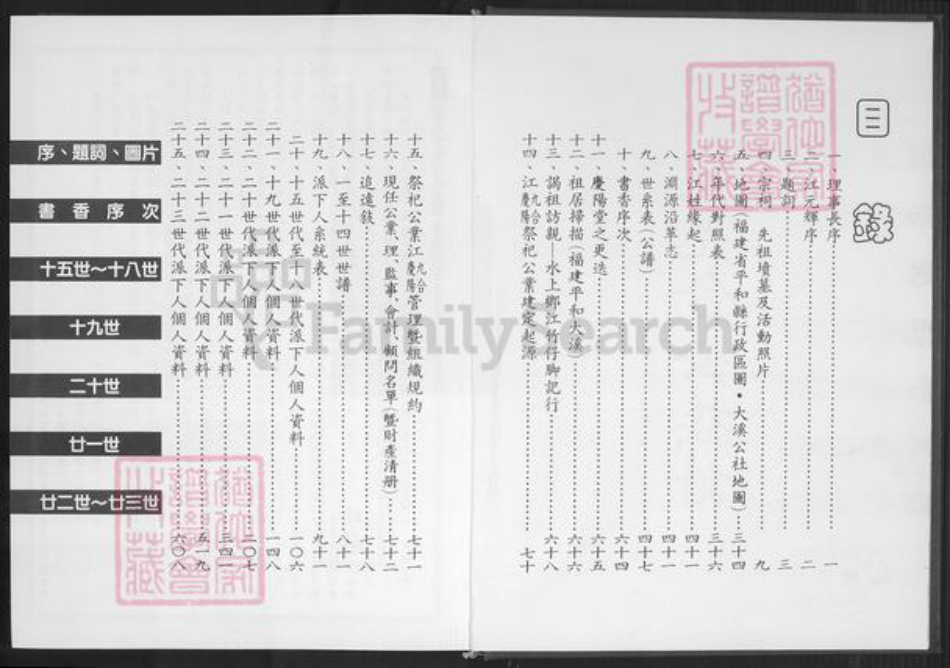 目錄
一、理事長序……一
二、江元輝序……二
三、題詞……三
四、宗祠、先祖墳墓及活動照片……九
五、地圖(福建省平和縣行政區圖・大溪公社地圖)……三十四
六、年代對照表……三十六
七、江姓緣起……四十一
八、淵源沿革志……四十一
九、世系表(公譜)……四十七
十、書香序次……六十四
十一、慶陽堂之更迭……六十五
十二、祖居掃描(福建平和大溪)……六十六
十三、謁祖訪親——水上鄉江竹仔腳記行……六十八
十四、江九合慶陽祭祀公業建定起源……七十
十五、祭祀公業江九合慶陽管理暨組織規約……七十一
十六、現任公業、理、監事、會計、顧問名單(暨財產清冊)……七十二
十七、追遠錄……七十八
十八、一至十四世世譜……八十一
十九、派下人系統表……九十一
二十、十五世代至十八世代派下人個人資料……一〇六
二十一、十九世代派下人個人資料……一四八
二十二、二十世代派下人個人資料……二〇七
二十三、二十一世代派下人個人資料……三四一
二十四、二十二世代派下人個人資料……五一九
二十五、二十三世代派下人個人資料……六〇八
序、題詞、圖片
書香序次
十五世~十八世
十九世
二十世
廿一世
廿二世~廿三世
FamilySearch